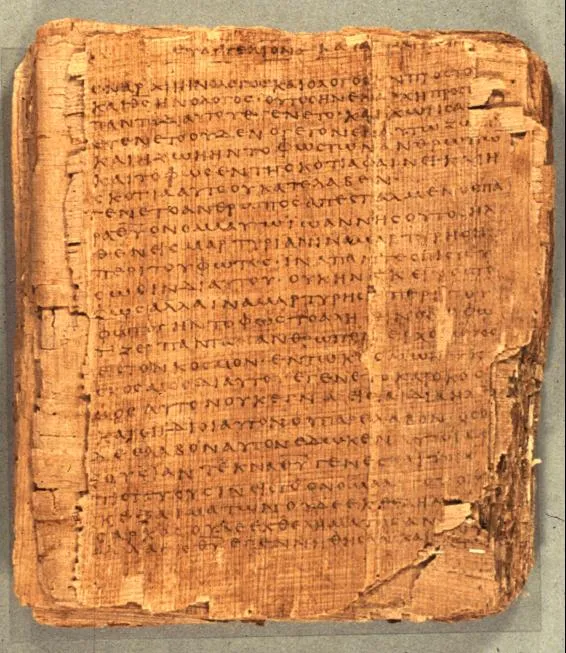 ΕΥΑΓΓΕΛΙΟΝ ΚΑ
ΕΝ ΑΡΧΗ ΗΝ Ο ΛΟΓΟϹ ΚΑΙ Ο ΛΟΓΟϹ ΗΝ ΠΡΟϹ ΤΟ
ΚΑΙ ΘϹ ΗΝ Ο ΛΟΓΟϹ · ΟΥΤΟϹ ΗΝ ΕΝ ΑΡΧΗ ΠΡΟϹ
ΠΑΝΤΑ ΔΙ ΑΥΤΟΥ ΕΓΕΝΕΤΟ · ΚΑΙ ΧΩΡΙϹ
ΕΓΕΝΕΤΟ ΟΥΔΕΝ Ο ΓΕΓΟΝΕΝ ΑΥΤΩ
ΚΑΙ Η ΖΩΗ ΗΝ ΤΟ ΦΩϹ ΤΩΝ ΑΝΘΡΩΠΩ
ΚΑΙ ΤΟ ΦΩϹ ΕΝ ΤΗ ϹΚΟΤΙΑ ΦΑΙΝΕΙ ΚΑΙ Η
ϹΚΟΤΙΑ ΑΥΤΟ ΟΥ ΚΑΤΕΛΑΒΕΝ
ΕΓΕΝΕΤΟ ΑΝΘΡΩΠΟϹ ΑΠΕϹΤΑΛΜΕΝΟϹ ΠΑ
ΡΑ ΘΥ ΟΝΟΜΑ ΑΥΤΩ ΙΩΑΝΝΗϹ ΟΥΤΟϹ ΗΛ
ΘΕΝ ΕΙϹ ΜΑΡΤΥΡΙΑΝ ΙΝΑ ΜΑΡΤΥΡΗϹΗ
ΠΕΡΙ ΤΟΥ ΦΩΤΟϹ · ΙΝΑ ΠΑΝΤΕϹ ΠΙϹΤΕΥ
ϹΩϹΙΝ ΔΙ ΑΥΤΟΥ · ΟΥΚ ΗΝ ΕΚΕΙΝΟϹ ΤΟ
ΦΩϹ ΑΛΛΑ ΙΝΑ ΜΑΡΤΥΡΗϹΗ ΠΕΡΙ ΤΟΥ
ΦΩΤΟϹ ΗΝ ΤΟ ΦΩϹ ΤΟ ΑΛΗΘΙΝΟΝ Ο ΦΩ
ΤΙΖΕΙ ΠΑΝΤΑ ΑΝΘΡΩΠΟΝ
ΕΙϹ ΤΟΝ ΚΟϹΜΟΝ · ΕΝ ΤΩ ΚΟϹΜΩ ΗΝ
ΔΙ ΑΥΤΟΥ ΕΓΕΝΕΤΟ ΚΑΙ Ο ΚΟϹ
ΜΟϹ ΑΥΤΟΝ ΟΥΚ ΕΓΝΩ ΕΙϹ ΤΑ ΙΔΙΑ ΗΛΘΕ
ΚΑΙ ΟΙ ΙΔΙΟΙ ΑΥΤΟΝ ΟΥ ΠΑΡΕΛΑΒΟΝ · ΟϹΟΙ
ΔΕ ΕΛΑΒΟΝ ΑΥΤΟΝ ΕΔΩΚΕΝ ΑΥΤΟΙϹ
ΟΥϹΙΑΝ ΤΕΚΝΑ ΘΥ ΓΕΝΕϹΘΑΙ
ΕΙϹ ΤΟ ΟΝΟΜΑ
ΑΙΜΑΤΩΝ ΟΥΔΕ ΕΚ ΘΕΛΗΜΑ
ϹΑΡΚΟϹ ΟΥΔΕ ΕΚ ΘΕΛΗΜΑΤΟϹ ΑΝ
ΑΛΛΑ ΕΚ ΘΥ ΕΓΕΝΝΗΘΗϹΑΝ ΚΑΙ